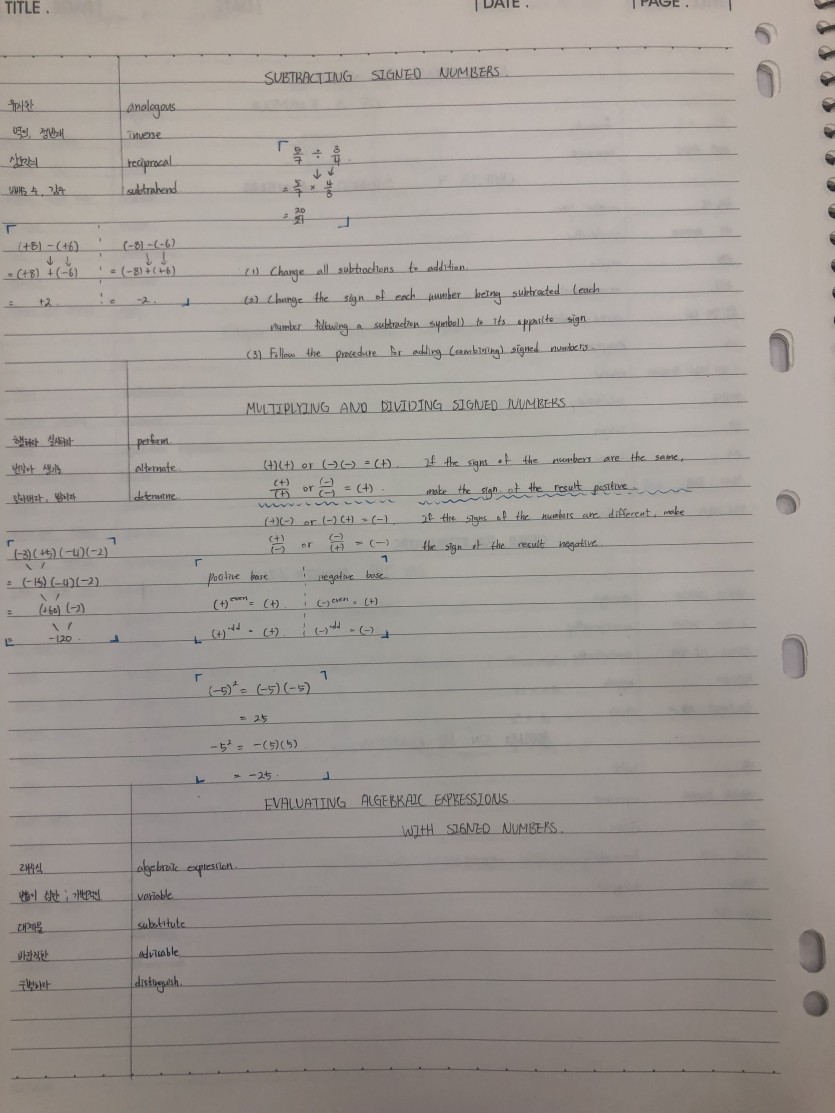 TITLE . DATE . PAGE .
SUBTRACTING SIGNED NUMBERS
유사한 analogous
역의, 정반대 inverse
reciprocal
subtrahend
5/7 ÷ 3/4
= 5/7 × 4/3
= 20/21
(+8) - (+6) (-8) - (-6)
= (+8) + (-6) = (-8) + (+6)
= +2 = -2.
(1) Change all subtractions to addition.
(2) Change the sign of each number being subtracted (each
number following a subtraction symbol) to its opposite sign
(3) Follow the procedure for adding (combining) signed numbers.
MULTIPLYING AND DIVIDING SIGNED NUMBERS
행하다 실시하다 perform
번갈아 생기는 alternate
알아내다, 밝히다 determine
(+)(+) or (-)(-) = (+). If the signs of the numbers are the same,
(+)/(+) or (-)/(-) = (+). make the sign of the result positive.
(+)(-) or (-)(+) = (-). If the signs of the numbers are different, make
(+)/(-) or (-)/(+) = (-) the sign of the result negative.
(-3)(+5)(-4)(-2)
= (-15)(-4)(-2)
= (+60)(-2)
= -120.
positive base negative base
(+)^even = (+). (-)^even = (+)
(+)^odd = (+). (-)^odd = (-)
(-5)² = (-5)(-5)
= 25
-5² = -(5)(5)
= -25.
EVALUATING ALGEBRAIC EXPRESSIONS
WITH SIGNED NUMBERS.
대수식 algebraic expression.
변동이 심한 ; 가변적인 variable
대체물 substitute
바람직한 advisable
구별하다 distinguish.